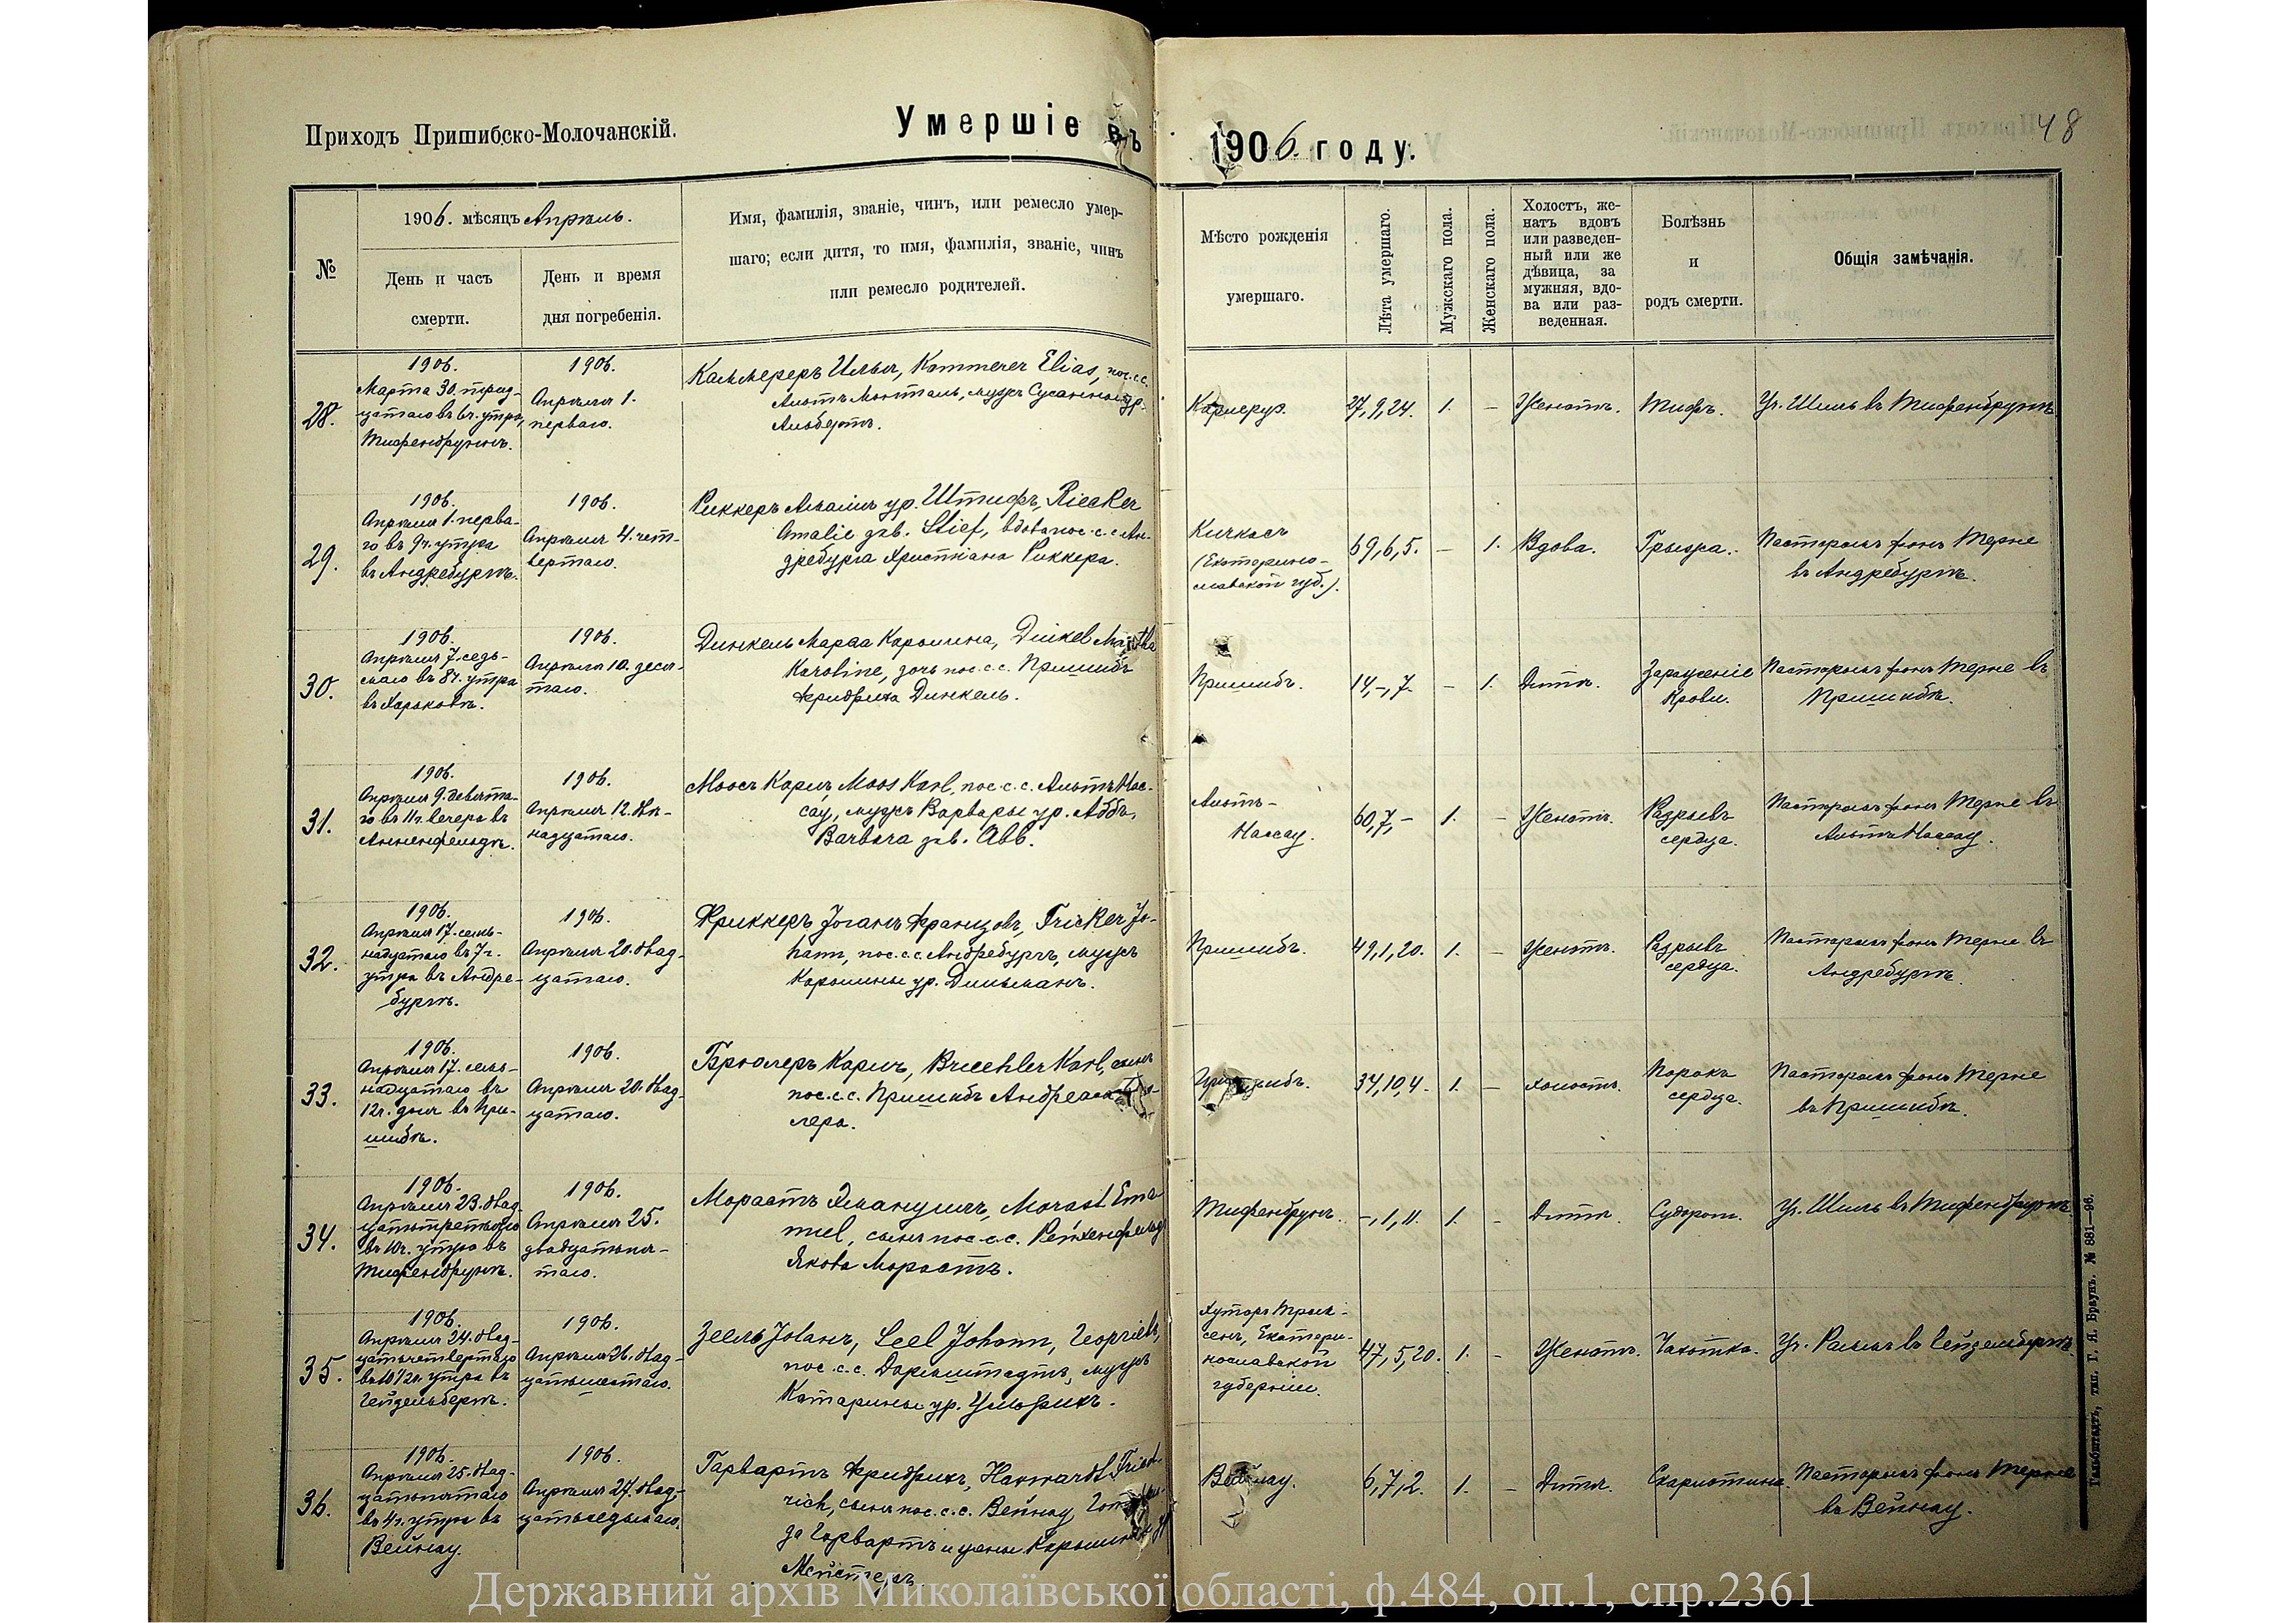 Приходъ Пришибско-Молочанскій.
Умершіе въ
1906. году.
48
№
1906. мѣсяцъ Апрѣль.
День и часъ
смерти.
День и время
дня погребенія.
Имя, фамилія, званіе, чинъ, или ремесло умер-
шаго; если дитя, то имя, фамилія, званіе, чинъ
или ремесло родителей.
Мѣсто рожденія
умершаго.
Лѣта умершаго.
Мужскаго пола.
Женскаго пола.
Холостъ, же-
натъ вдовъ
или разведен-
ный или же
дѣвица, за
мужняя, вдо-
ва или раз-
веденная.
Болѣзнь
и
родъ смерти.
Общія замѣчанія.
28.
1906.
Марта 30. трид-
цатаго въ 6ч. утра,
Тифенбруннъ.
1906.
Апрѣля 1.
перваго.
Каммереръ Илья, Kammerer Elias, пос.с.с.
Альтъ Монталь, мужъ Сусанны ур.
Альбертъ.
Карлсру.
27,9,24.
1.
–
Женатъ.
Тифъ.
Уч. Шиль въ Тифенбруннѣ
29.
1906.
Апрѣля 1. перва-
го въ 9ч. утра
въ Андребургѣ.
1906.
Апрѣля 4. чет-
вертаго.
Риккеръ Амалія ур. Штифъ, Riecker
Amalie geb. Stief, вдова пос.с.с. Ан-
дребурга Христіана Риккера.
Кичкасъ
(Екатерино-
славской губ.).
69,6,5.
–
1.
Вдова.
Грыжа.
Пасторомъ фонъ Терне
въ Андребургѣ.
30.
1906.
Апрѣля 7. седь-
маго въ 8ч. утра
въ Харьковѣ.
1906.
Апрѣля 10. деся-
таго.
Динкель Марта Каролина, Dinkel Martha
Karoline, дочь пос.с.с. Пришибъ
Фридриха Динкель.
Пришибъ.
14,–,7.
–
1.
Дитя.
Зараженіе
крови.
Пасторомъ фонъ Терне въ
Пришибѣ.
31.
1906.
Апрѣля 9. девята-
го въ 11ч. вечера въ
Анненфельдѣ.
1906.
Апрѣля 12. двѣ-
надцатаго.
Моосъ Карлъ, Moos Karl, пос.с.с. Альтъ Нас-
сау, мужъ Варвары ур. Аббъ,
Barbara geb. Abb.
Альтъ-
Нассау.
60,7,–
1.
–
Женатъ.
Разрывъ
сердца.
Пасторомъ фонъ Терне въ
Альтъ Нассау.
32.
1906.
Апрѣля 17. семь-
надцатаго въ 7ч.
утра въ Андре-
бургѣ.
1906.
Апрѣля 20. двад-
цатаго.
Фриккеръ Joганъ Францовъ, Fricker Jo-
hann, пос.с.с. Андребургъ, мужъ
Каролины ур. Дильманъ.
Пришибъ.
49,1,20.
1.
–
Женатъ.
Разрывъ
сердца.
Пасторомъ фонъ Терне въ
Андребургѣ.
33.
1906.
Апрѣля 17. семь-
надцатаго въ
12ч. дня въ При-
шибѣ.
1906.
Апрѣля 20. двад-
цатаго.
Брюлеръ Карлъ, Bruehler Karl, сынъ
пос.с.с. Пришибъ Андреаса
лера.
Пришибъ.
34,10,4.
1.
–
Холостъ.
Порокъ
сердца.
Пасторомъ фонъ Терне
въ Пришибѣ.
34.
1906.
Апрѣля 23. двад-
цатьтретьяго
въ 10ч. утра въ
Тифенбруннѣ.
1906.
Апрѣля 25.
двадцатьпя-
таго.
Морастъ Эмануилъ, Morast Ema-
nuel, сынъ пос.с.с. Рейхенфельдъ
Якова Морастъ.
Тифенбруннъ.
–,1,11.
1.
–
Дитя.
Судороги.
Уч. Шиль въ Тифенбруннѣ.
35.
1906.
Апрѣля 24. двад-
цатьчетвертаго
въ 10½ч. утра въ
Гейдельбергѣ.
1906.
Апрѣля 26. двад-
цатьшестаго.
Зеель Joганъ, Seel Johann,
пос.с.с. Дармштадтъ, мужъ
Катарины ур. Ульрихъ.
Хуторъ
Екатери-
нославской
губерніи.
47,5,20.
1.
–
Женатъ.
Чахотка.
Уч. въ Гейдельбергѣ.
36.
1906.
Апрѣля 25. двад-
цатьпятаго
въ 4ч. утра въ
Вейнау.
1906.
Апрѣля 27. двад-
цатьседьмаго.
Гарвартъ Фридрихъ, Harwardt Fried-
rich, сынъ пос.с.с. Вейнау,
да Гарвартъ и жены Каролины ур.
Мейстеръ.
Вейнау.
6,7,2.
1.
–
Дитя.
Скарлатина.
Пасторомъ фонъ Терне
въ Вейнау.
Гальбштадтъ, тип. Г. Я. Браунъ. № 881—96.
Державний архів Миколаївської області, ф.484, оп.1, спр.2361